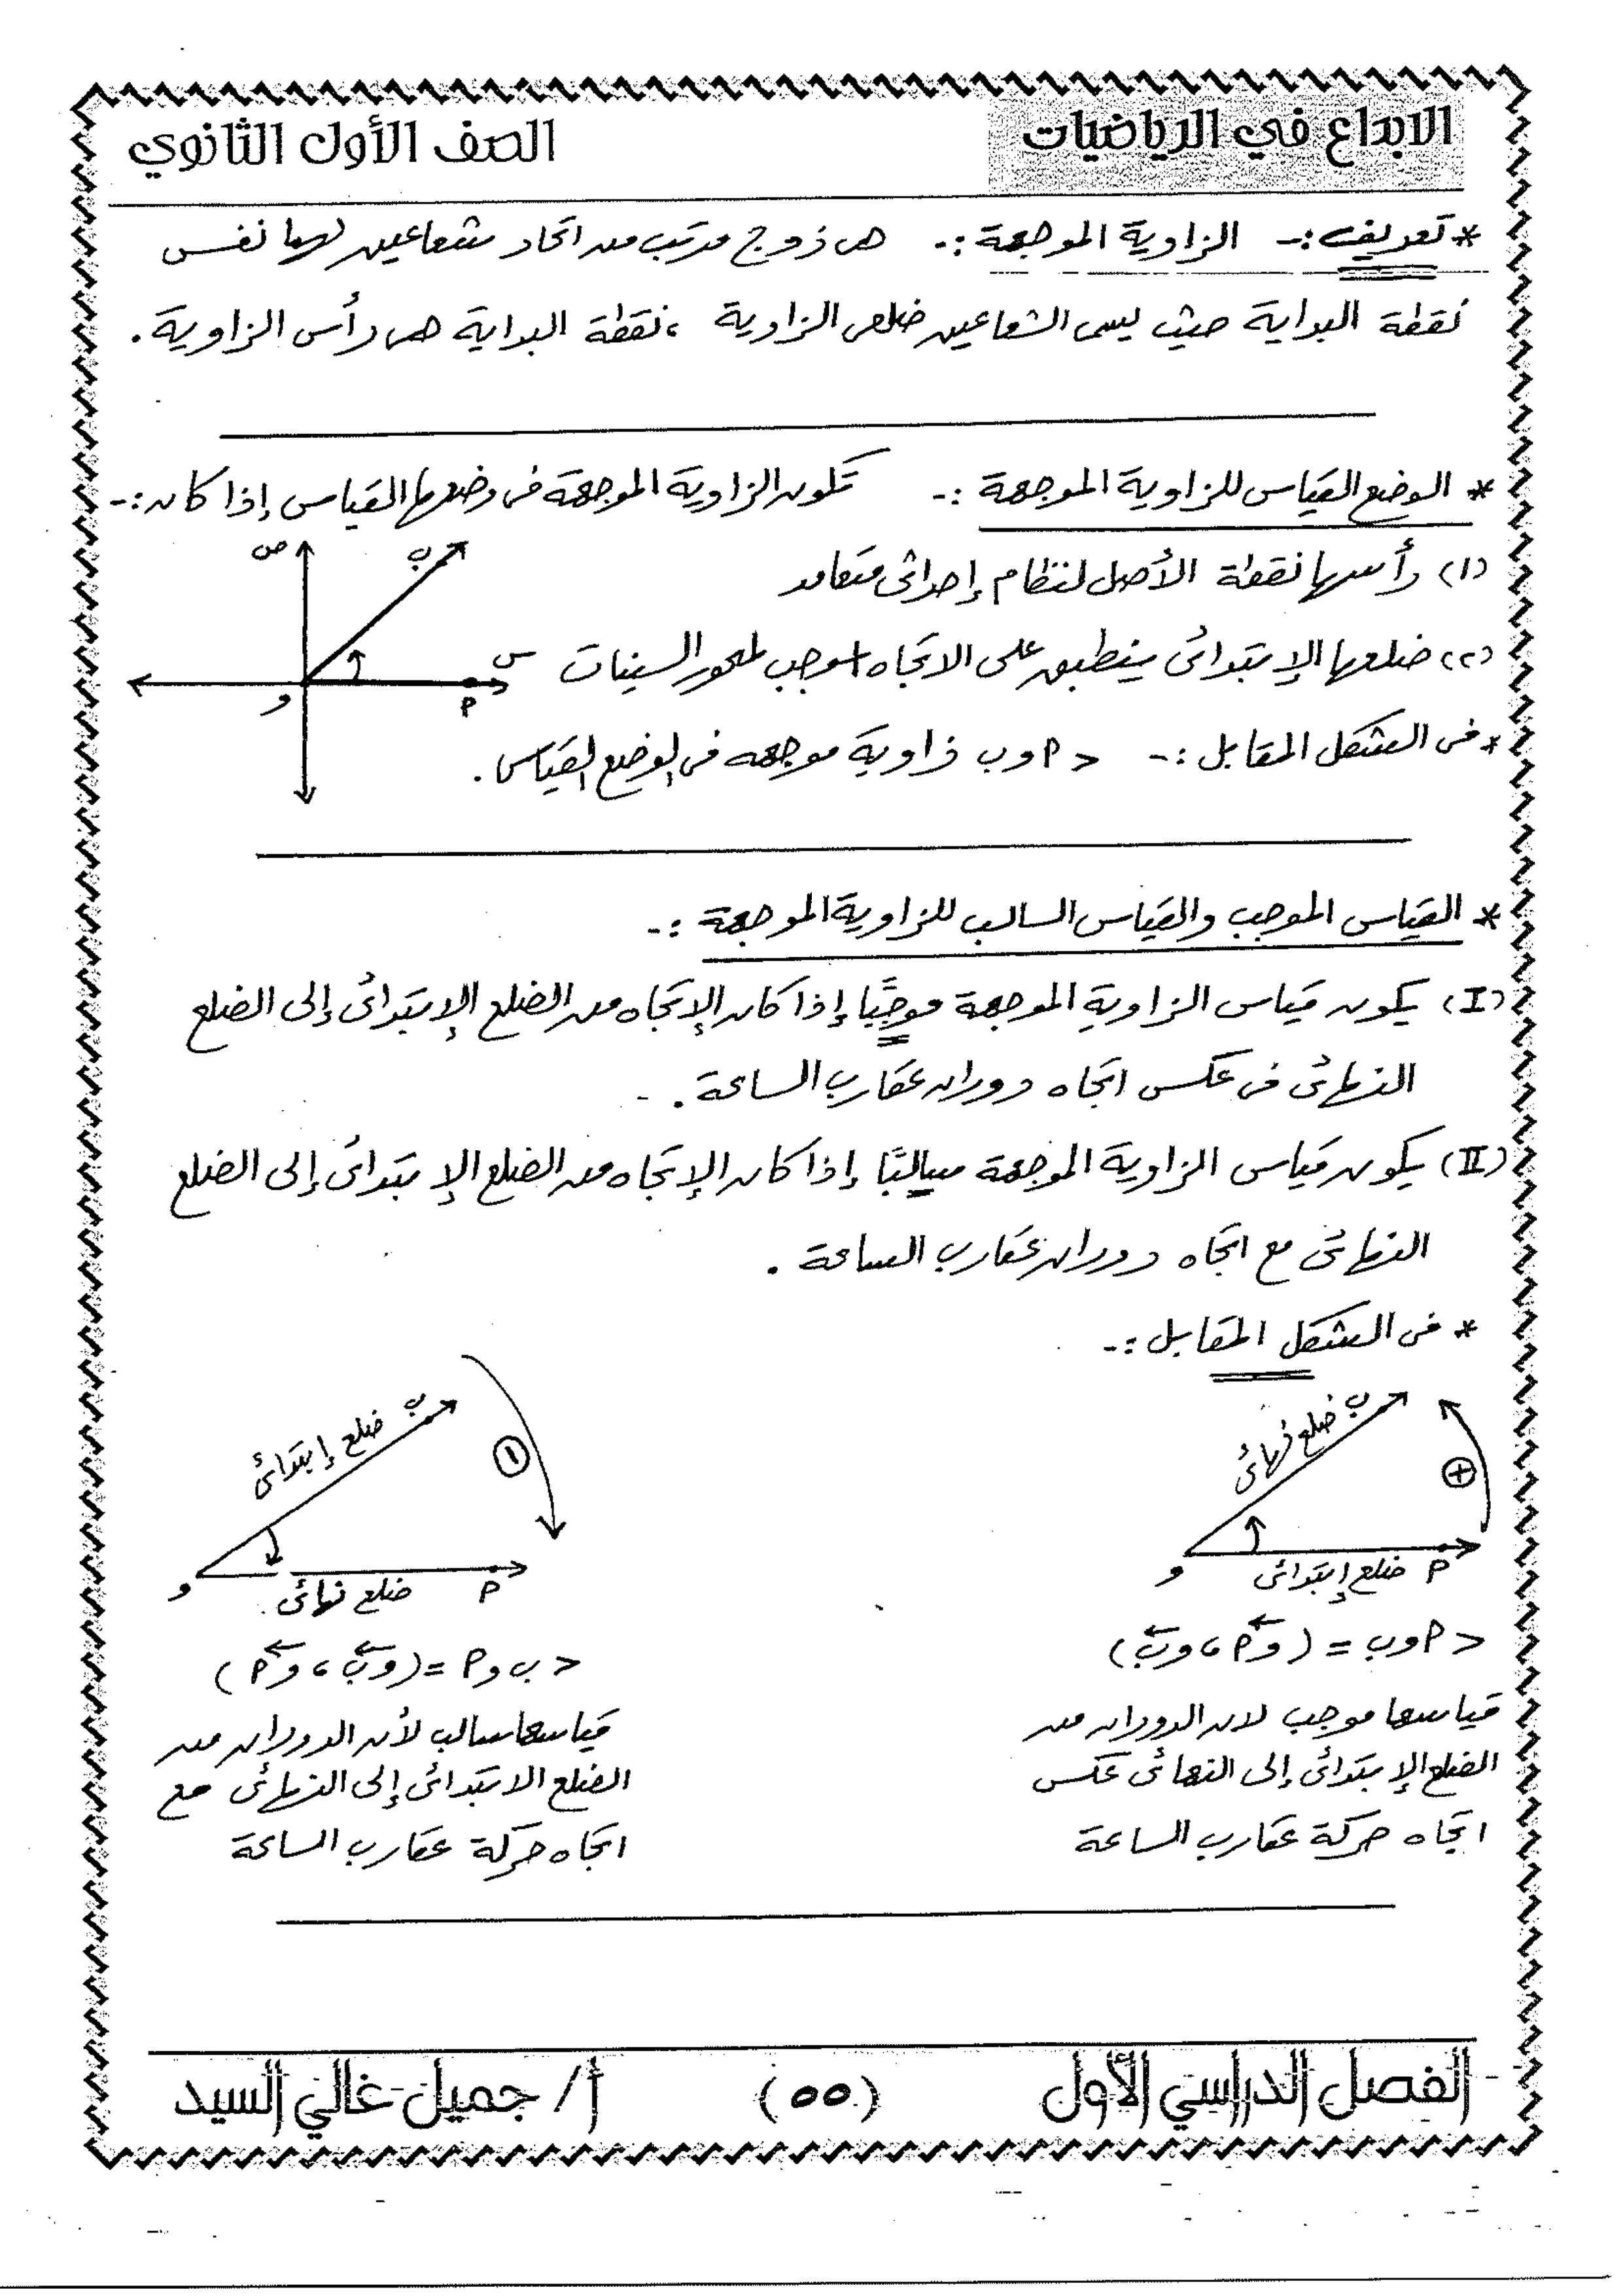 الابداع في الرياضيات
الصف الأول الثانوي
* تعريف :- الزاوية الموجهة :- هى زوج مرتب من اتحاد شعاعين لهما نفس
نقطة البداية حيث يسمى الشعاعين ضلعى الزاوية ، نقطة البداية هى رأس الزاوية .
* الوضع القياسى للزاوية الموجهة :- تكون الزاوية الموجهة فى وضعها القياسى إذا كان :-
(١) رأسها نقطة الأصل لنظام إحداثى متعامد
(٢) ضلعها الإبتدائى ينطبق على الاتجاه الموجب لمحور السينات
ص
ب
س
و
م
* فى الشكل المقابل :- > م و ب زاوية موجهه فى الوضع القياسى .
* القياس الموجب والقياس السالب للزاوية الموجهة :-
(I) يكون قياس الزاوية الموجهة موجبًا إذا كان الإتجاه من الضلع الإبتدائى إلى الضلع
النهائى فى عكس اتجاه دوران عقارب الساعة .
(II) يكون قياس الزاوية الموجهة سالبًا إذا كان الإتجاه من الضلع الإبتدائى إلى الضلع
النهائى مع اتجاه دوران عقارب الساعة .
* فى الشكل المقابل :-
ب
ضلع نهائى
+
و
ضلع إبتدائى
م
> م و ب = (و م ، و ب)
قياسها موجب لان الدوران من
الضلع الإبتدائى إلى النهائى عكس
اتجاه حركة عقارب الساعة
ب
ضلع إبتدائى
-
و
ضلع نهائى
م
> ب و م = (و ب ، و م)
قياسها سالب لأن الدوران من
الضلع الابتدائى إلى النهائى مع
اتجاه حركة عقارب الساعة
الفصل الدراسي الأول
(٥٥)
أ/ جميل غالي السيد